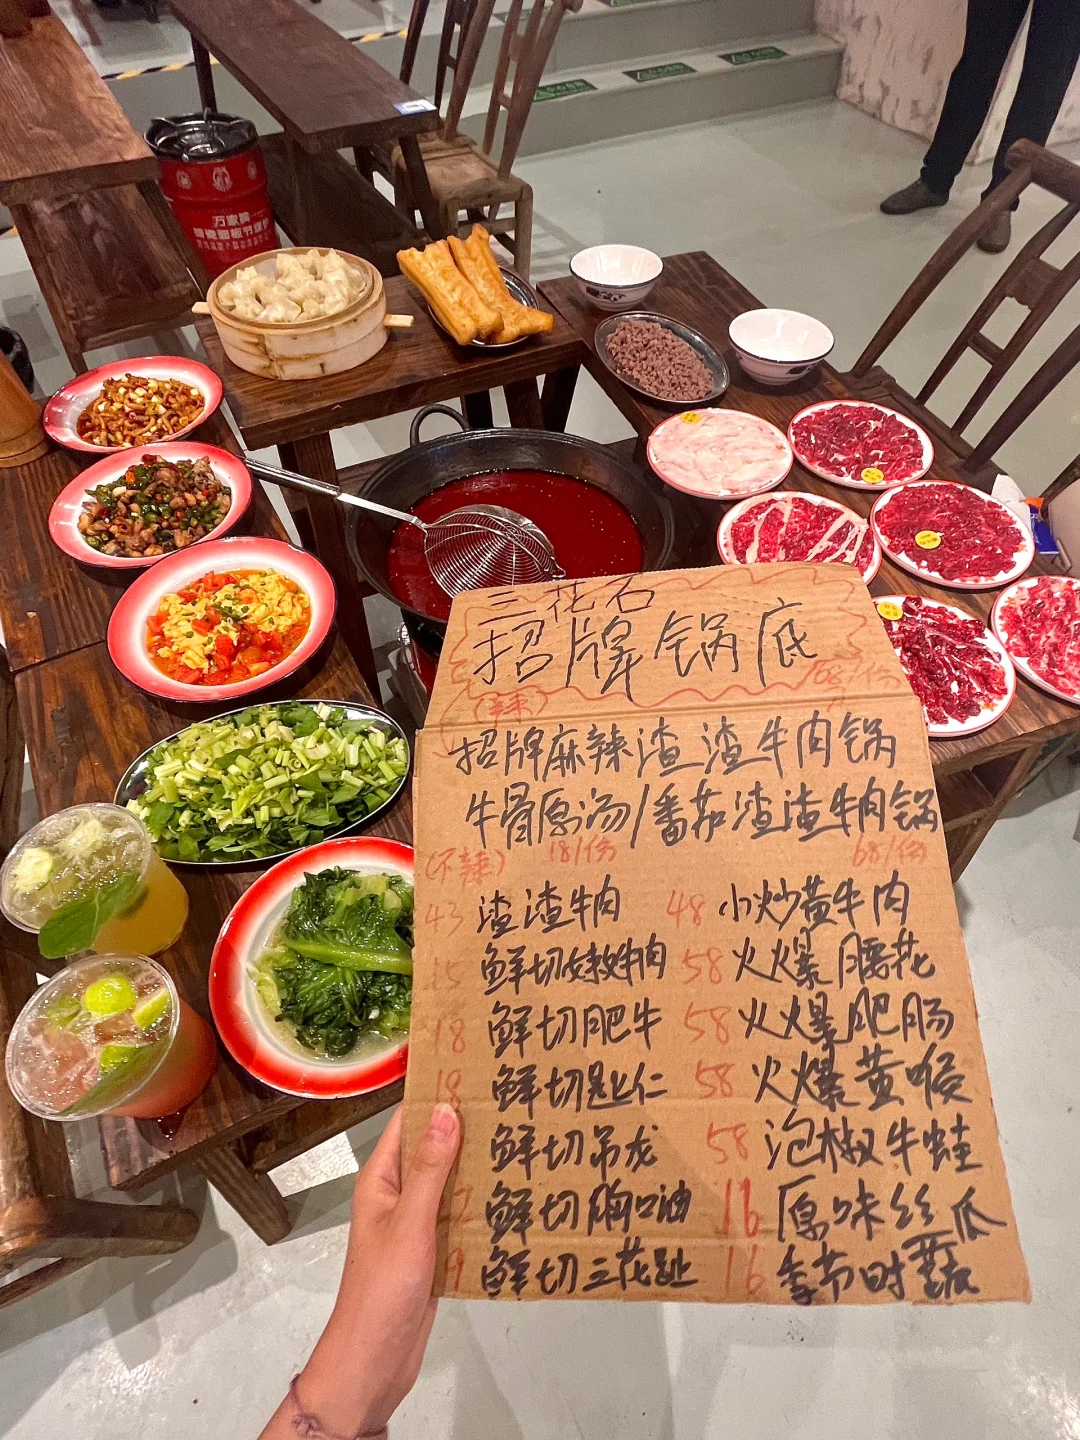 万家牌
三花石
招牌锅底
68/份
(辣)
招牌麻辣渣渣牛肉锅
牛骨原汤/番茄渣渣牛肉锅
(不辣) 18/份 68/份
43 渣渣牛肉 48 小炒黄牛肉
15 鲜切嫩牛肉 58 火爆腰花
18 鲜切肥牛 58 火爆肥肠
18 鲜切匙仁 58 火爆黄喉
鲜切吊龙 58 泡椒牛蛙
鲜切胸口油 16 原味丝瓜
9 鲜切三花趾 16 季节时蔬